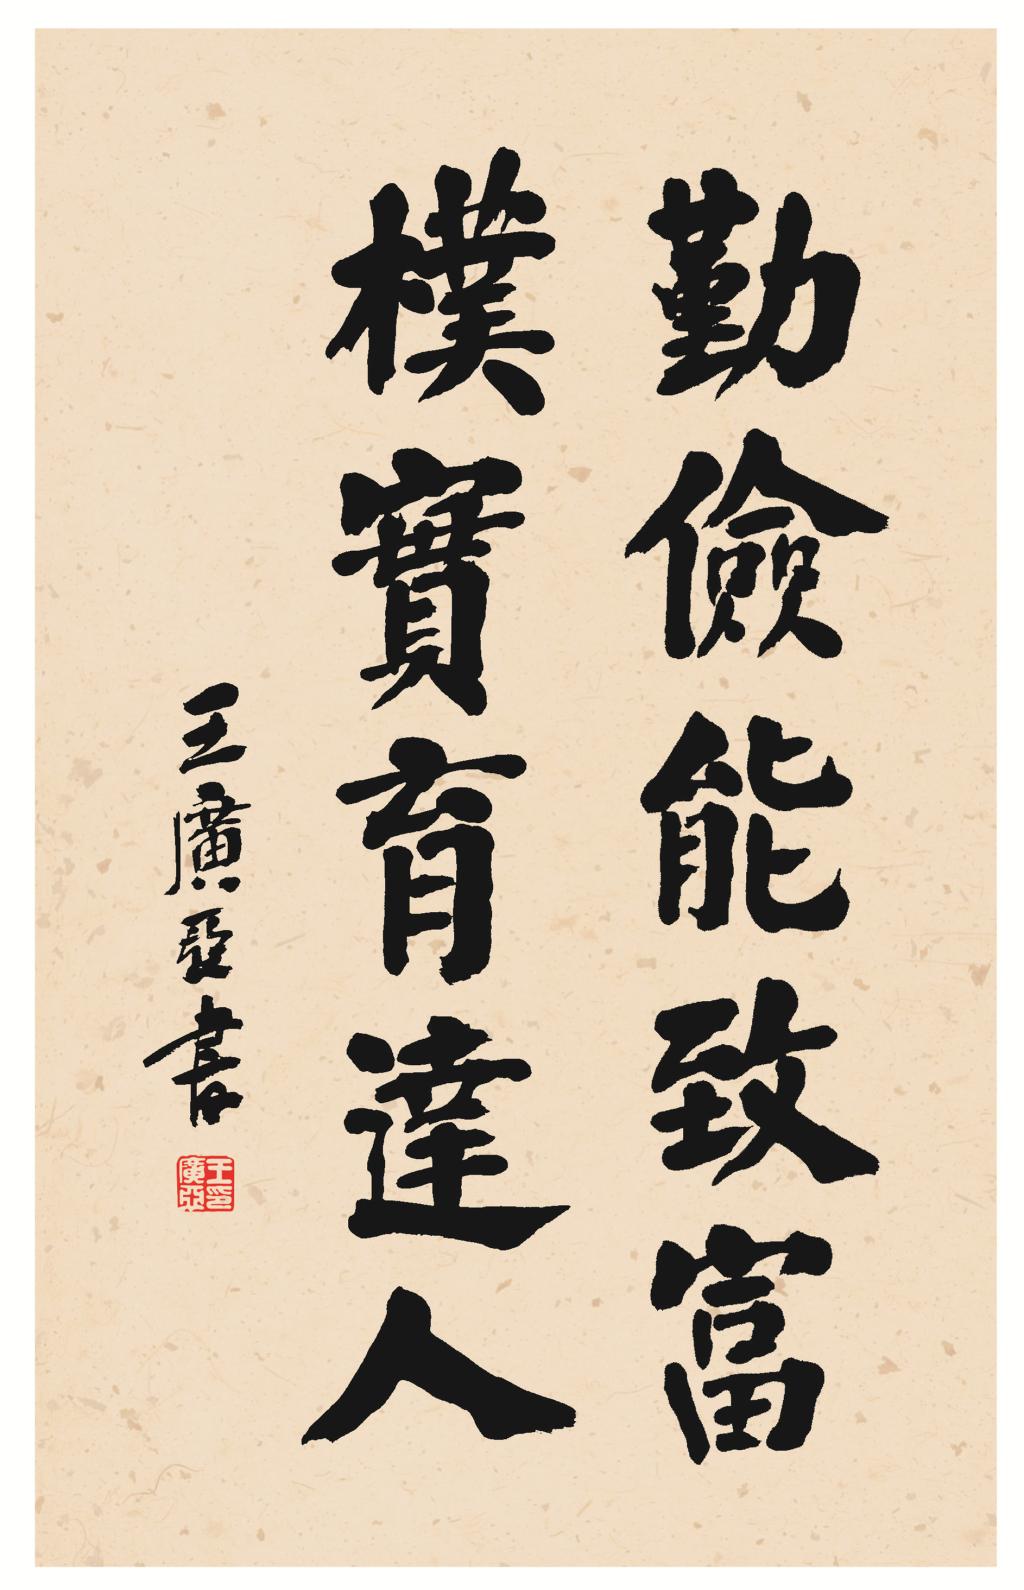 勤儉能致富
樸實育達人
王廣亞書
王印廣亞